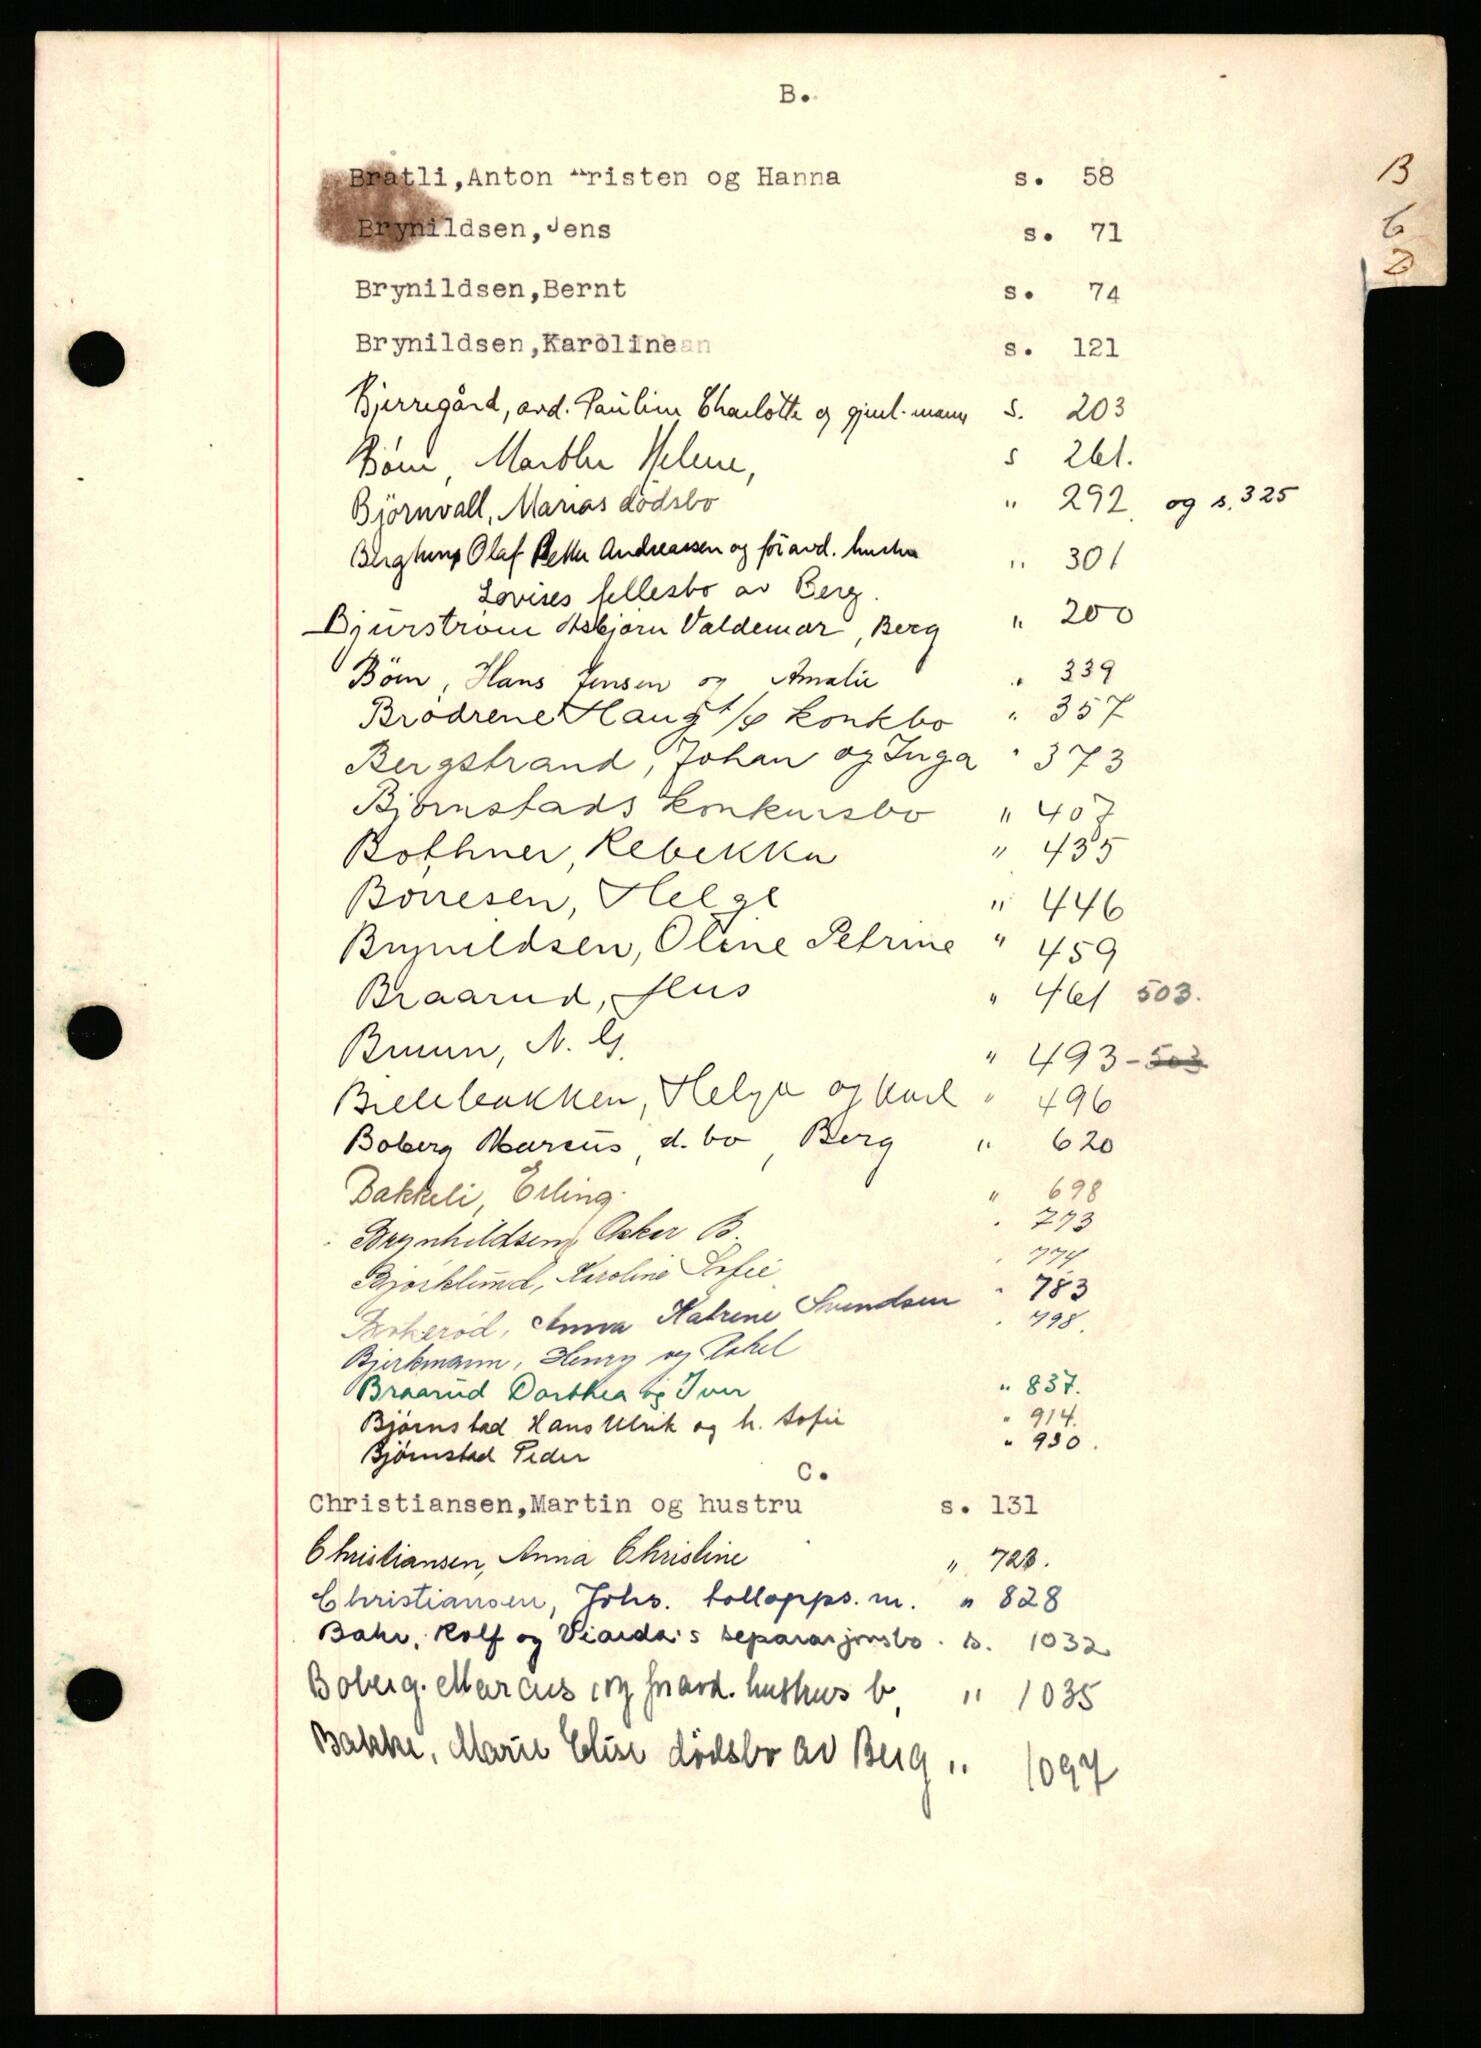 B.
B
C
D
Bratli,Anton Kristen og Hanna s. 58
Brynildsen,Jens s. 71
Brynildsen,Bernt s. 74
Brynildsen,Karoline s. 121
Bjerregård, avd. Pauline Charlotte og gjenl. mann s. 203
Böen, Marthe Helene, s 261.
Björnvall, Marias dödsbo " 292. og s. 325
Olaf Petter Andreassen og föravd. hustru " 301
Lovises fellesbo av Berg.
Bjurström Asbjörn Valdemar, Berg " 200
Böen, Hans Jensen og Amalie " 339
Brödrene Haug A/S konkbo " 357
Bergstrand, Johan og Inga " 373
Bjørnstads konkursbo " 407
Bothner, Rebekka " 435
Borresen, Helge " 446
Brynildsen, Oline Petrine " 459
Braarud, Jens " 461 503.
Bruun, N. G. " 493 - 503
Billebakken, Helga og Karl " 496
Boberg Marcus, d. bo, Berg " 620
Bakkeli, Erling. " 698
Brynhildsen, Oskar B. " 773
Bjørklund, Karoline Sofie " 774
Anna Katrine Svendsen " 783
Bjerkmann, Henry og Rakel " 798.
Braarud Dorthea og Iver " 837.
Bjørnstad Hans Ulrik og h. Sofie " 914.
Bjørnstad Peder " 930.
C.
Christiansen,Martin og hustru s. 131
Christiansen, Anna Christine " 723.
Christiansen, Johs. tollopps. m. " 828
Bahr, Rolf og Viarda's separasjonsbo. s. 1032
Boberg. Marcus og foravd. hustrus b, " 1035
Bakke, Marie Elise dödsbo av Berg " 1097